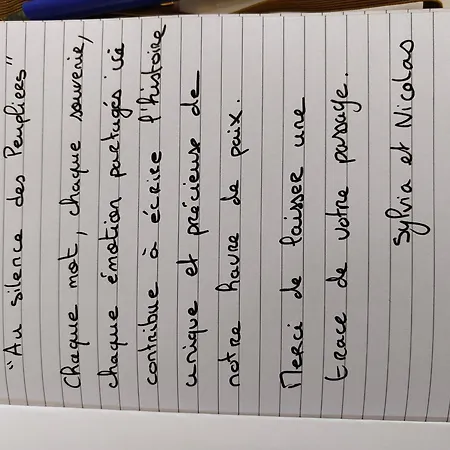 "Au silence des Peupliers"
Chaque mot, chaque souvenir,
chaque émotion partagés ici
contribue à écrire l'histoire
unique et précieuse de
notre havre de paix.
Merci de laisser une
trace de votre passage.
Sylvia et Nicolas